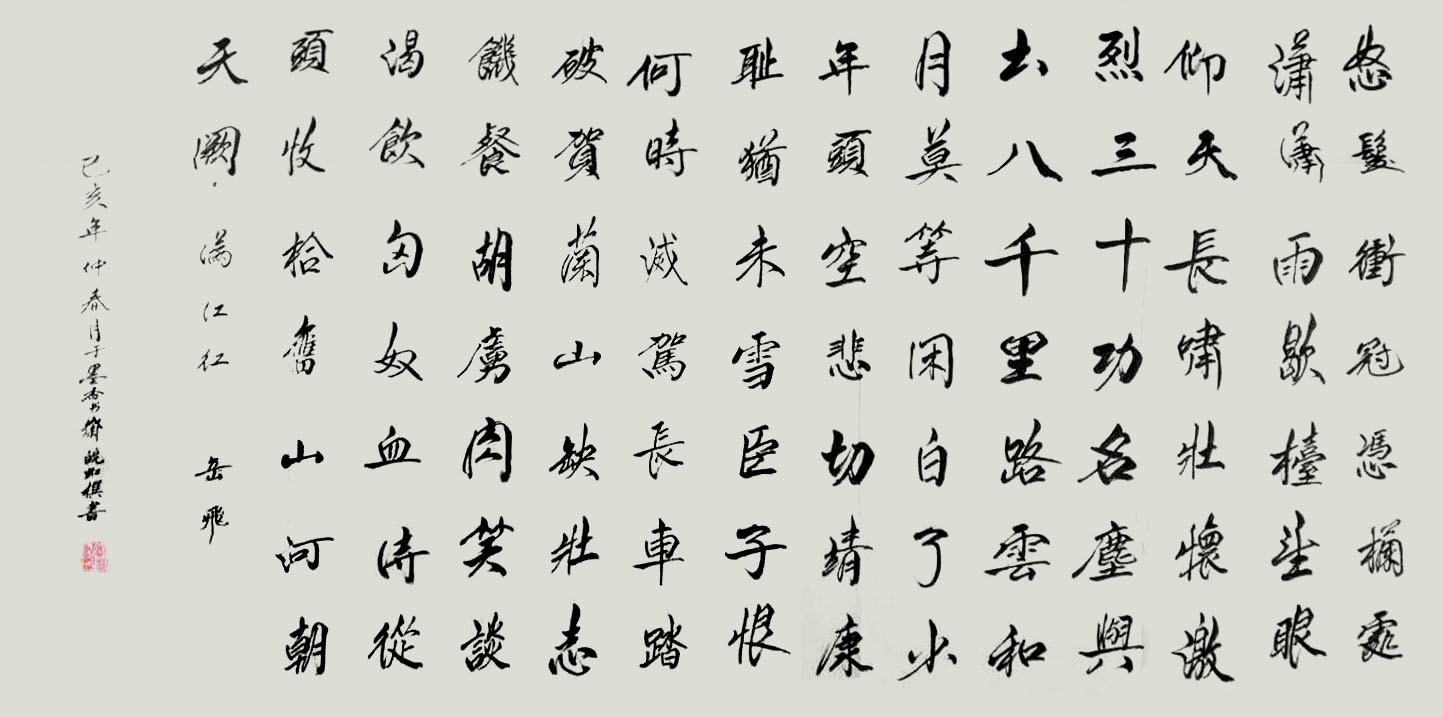 怒髮衝冠憑欄處
瀟瀟雨歇檯望眼
仰天長嘯壯懷激
烈三十功名塵與
土八千里路雲和
月莫等閑白了少
年頭空悲切靖康
耻猶未雪臣子恨
何時滅駕長車踏
破賀蘭山缺壯志
饑餐胡虜肉笑談
渴飲匈奴血待從
頭收拾舊山河朝
天闕．滿江红 岳飛
己亥年仲春月于墨香书齋撰書